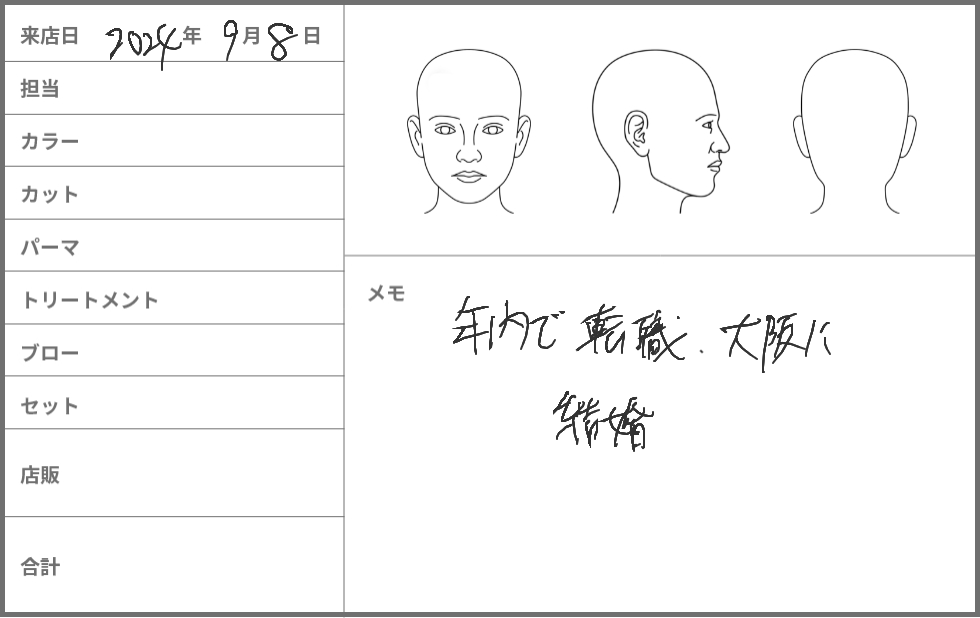 来店日 2024年 9月8日
担当
カラー
カット
パーマ
トリートメント
ブロー
セット
店販
合計
メモ
年内で転職、大阪に
結婚